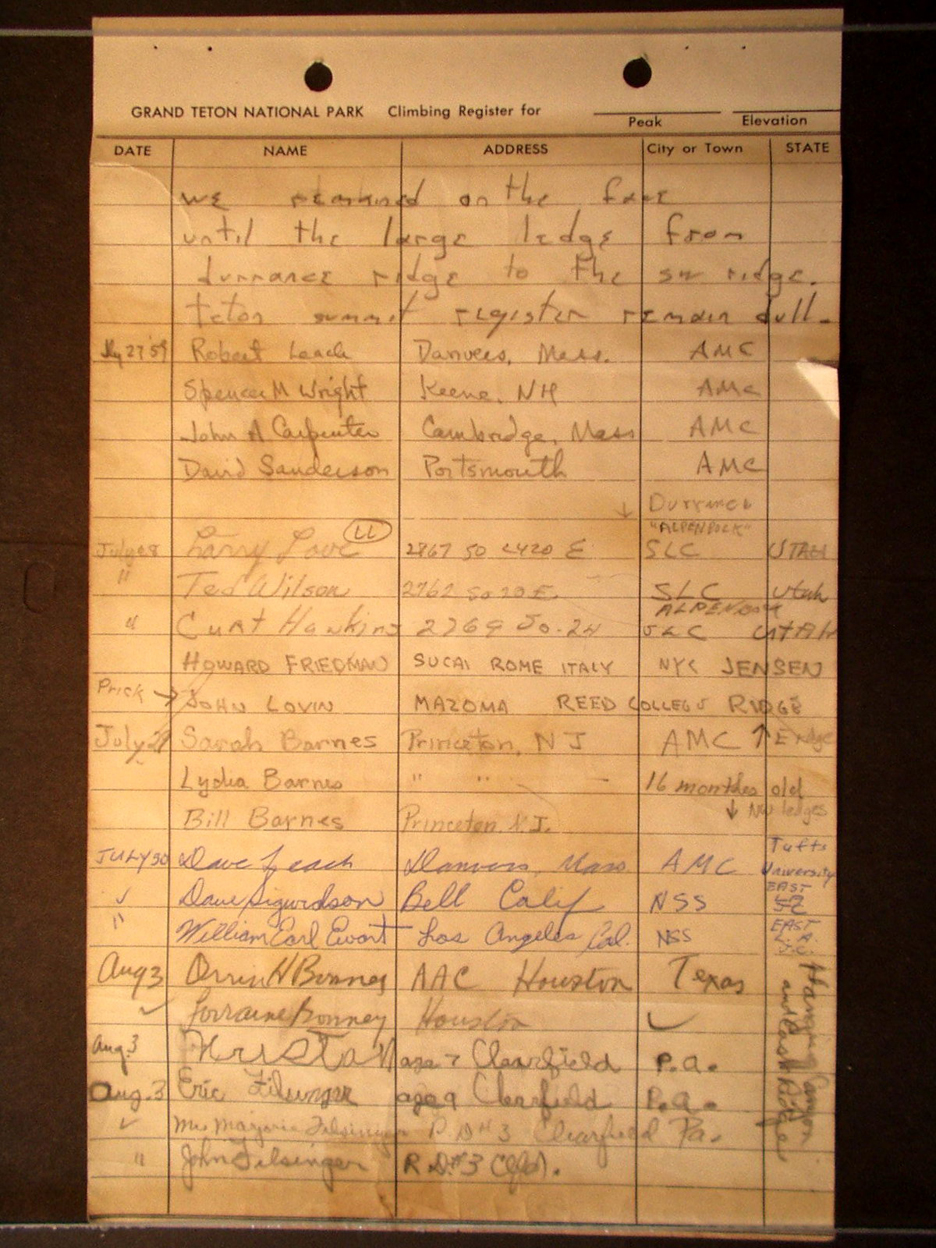 GRAND TETON NATIONAL PARK Climbing Register for
Peak Elevation
DATE NAME ADDRESS City or Town STATE
we remained on the face
until the large ledge from
durrance ridge to the sw ridge.
teton summit register remain dull.
July 27 '59 Robert Leach Danvers, Mass. AMC
Spencer M Wright Keene, NH AMC
John A Carpenter Cambridge, Mass AMC
David Sanderson Portsmouth AMC
↓ Durrance
"ALPENBOCK"
July 28 Larry Love LL 2867 SO 2420 E SLC UTAH
" Ted Wilson 2762 So 20 E. SLC Utah
ALPENBOCK
" Curt Hawkins 2769 So. 24 SLC UTAH
HOWARD FRIEDMAN SUCAI ROME ITALY NYC JENSEN
Prick → JOHN LOVIN MAZOMA REED COLLEGE RIDGE
July 29 Sarah Barnes Princeton, NJ AMC ↑ E ridge
Lydia Barnes " " 16 months old
↓ NW ledges
Bill Barnes Princeton N.J.
JULY 30 Dave Leach Danvers, Mass AMC Tufts University
✓ Dave Sigurdson Bell Calif NSS EAST LA JC
" William Earl Ewart Los Angeles Cal. NSS EAST L.A. J.C.
Aug 3 Orrin H Bonney AAC Houston Texas
✓ Lorraine Bonney Houston ✓
Aug. 3 age 7 Clearfield P.a.
Aug. 3 Eric Filsinger age 9 Clearfield P.a.
✓ Mrs Marjorie Filsinger R D #3 Clearfield Pa.
" John Filsinger R.D.#3 Clfd.
Hanging Canyon
and East Ridge